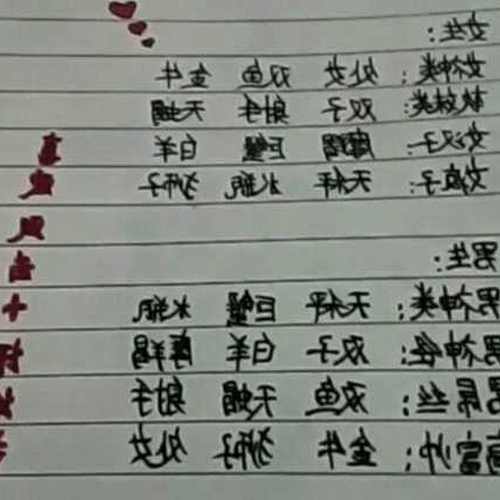 女生:
女神类: 处女 双鱼 金牛
软妹类: 双子 射手 天蝎
女汉子: 摩羯 巨蟹 白羊
女疯子: 天秤 水瓶 狮子
男生:
男神类: 天秤 巨蟹 水瓶
男神经: 双子 白羊 摩羯
男屌丝: 双鱼 天蝎 射手
高富帅: 金牛 狮子 处女